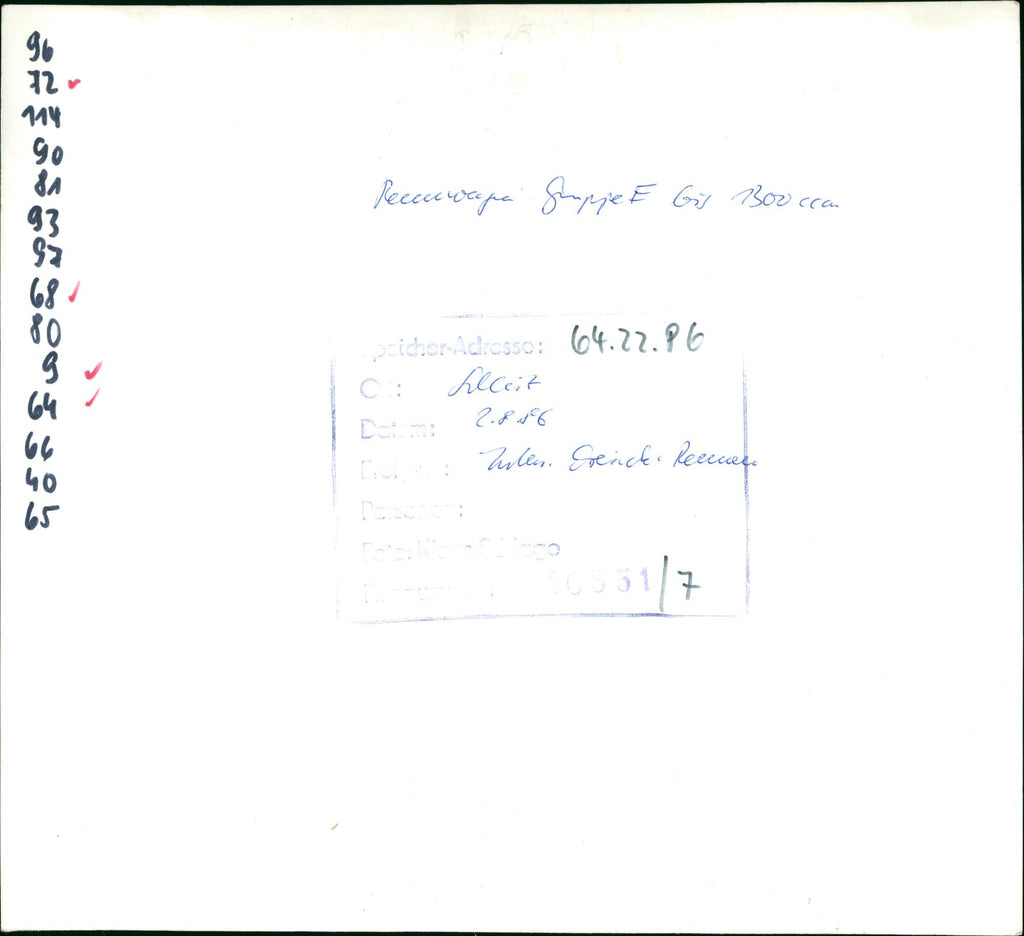 96
72
114
90
81
93
97
68
80
9
64
66
40
65
Rennwagen Gruppe E bis 1300 ccm
Speicher-Adresse: 64.22.86
Ort:
Datum: 2.8.86
Rennen
Personen:
Foto: Klaus
10551/7